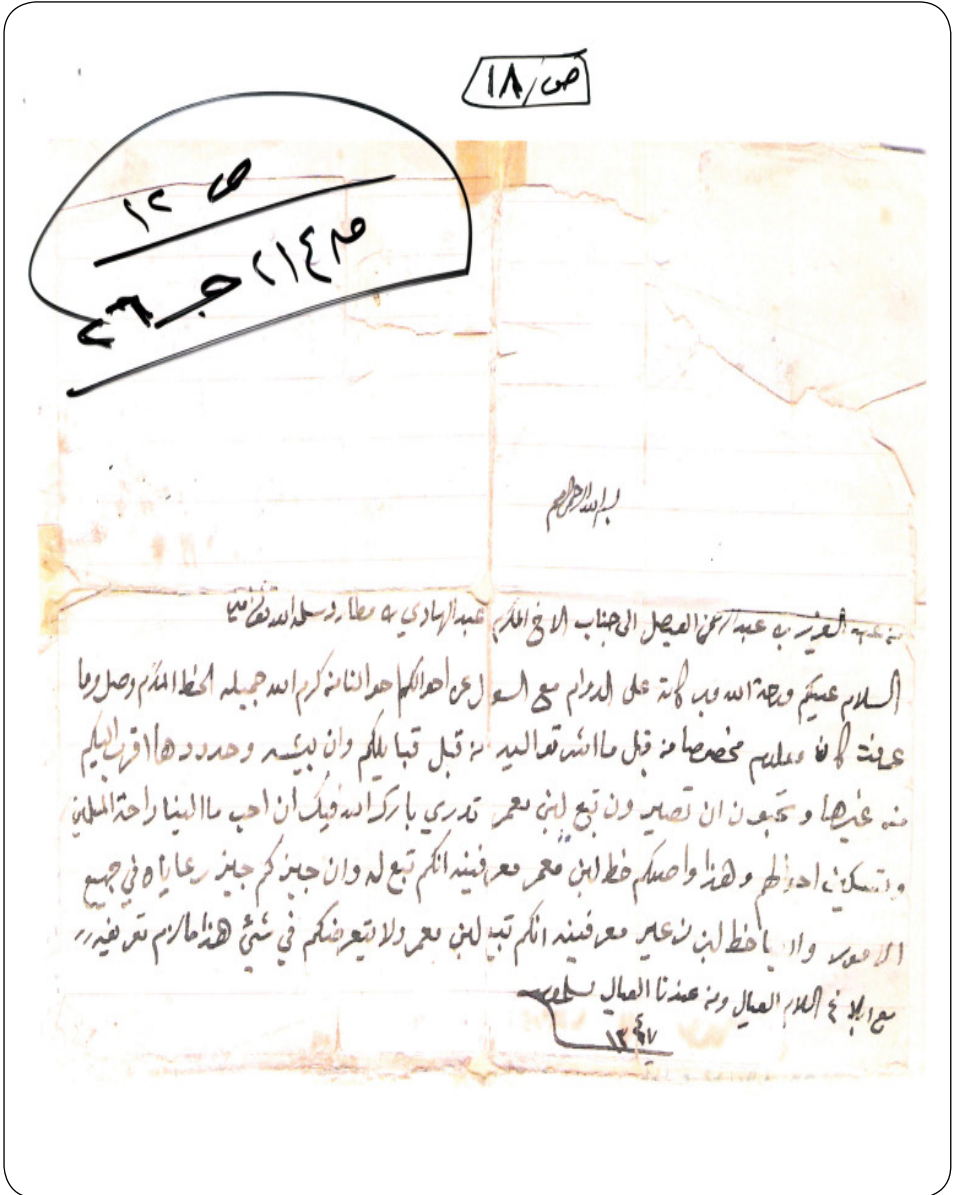 ص/١٨
ص ١٢
٢١٤ ج ٢٦
بسم الله الرحمن الرحيم
من عبد العزيز بن عبد الرحمن الفيصل الى جناب الاخ المكرم عبدالهادي بن مطارد سلمه الله تعالى امين
السلام عليكم ورحمة الله وبركاته على الدوام مع السوال عن احوالكم احوالنا من كرم الله جميله الخط المكرم وصل وما
عرفت كان معلوم مخصوصا من قبل ما اشرتو اليه من قبل قبايلكم وان بيشه وحدودها اقرب اليكم
من غيرها وتحبون ان تصيرون تبع لبن معمر تدري بارك الله فيك ان احب ما الينا راحة المسلمين
وتسكين احوالهم وهذا واصلكم خط لبن معمر معرفينه انكم تبع له وان جيزكم جيز رعاياه في جميع
الامور خط لبن معرفينه انكم تبع لبن معمر ولا يتعرضكم في شئ هذا ما لزم تعريفه
مع ابلاغ السلام العيال ومن عندنا العيال يسلمون
١٣٤٧